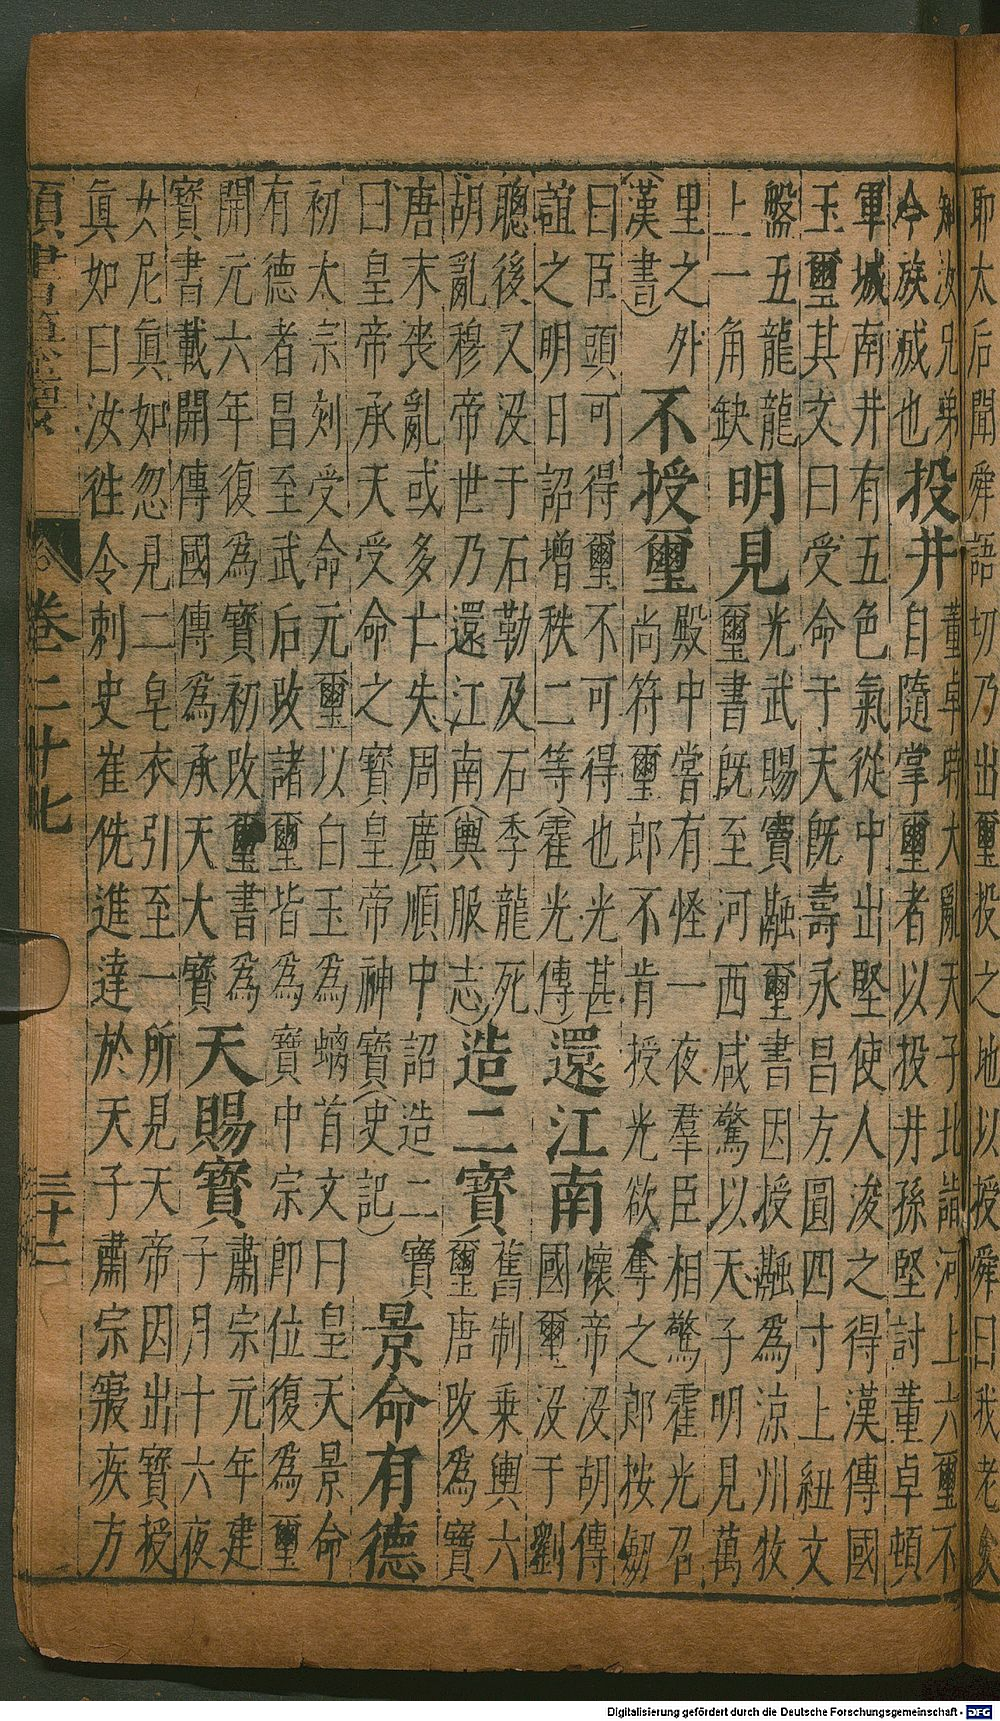 耶太后聞舜語切乃出璽投之地以授舜曰我老矣
知汝兄弟
今族滅也
投井
董卓時大亂天子北詣河上六璽不
自隨掌璽者以投井孫堅討董卓頓
軍城南井有五色氣從中出堅使人浚之得漢傳國
玉璽其文曰受命于天既壽永昌方圓四寸上紐文
盤五龍龍
上一角缺
明見
光武賜竇融璽書因授融為涼州牧
璽書既至河西咸驚以天子明見萬
里之外
(漢書)
不授璽
殿中嘗有怪一夜羣臣相驚霍光召
尚符璽郎不肯授光欲奪之郎按劒
曰臣頭可得璽不可得也光甚
誼之明日詔增秩二等(霍光傳)
還江南
懷帝没胡傳
國璽没于劉
聰後又没于石勒及石季龍死
胡亂穆帝世乃還江南(輿服志)
造二寶
舊制乗輿六
璽唐改為寶
唐末喪亂或多亡失周廣順中詔造二寶
曰皇帝承天受命之寶皇帝神寶(史記)
景命有德
初太宗刻受命元璽以白玉為螭首文曰皇天景命
有德者昌至武后改諸璽皆為寶中宗即位復為璽
開元六年復為寶初改璽書為
寶書載開傳國傳為承天大寶
天賜寶
肅宗元年建
子月十六夜
女尼真如忽見二皂衣引至一所見天帝因出寶授
真如曰汝徃令刺史崔侁進達於天子肅宗寢疾方
類書纂要 卷二十七 三十二
Digitalisierung gefördert durch die Deutsche Forschungsgemeinschaft - DFG